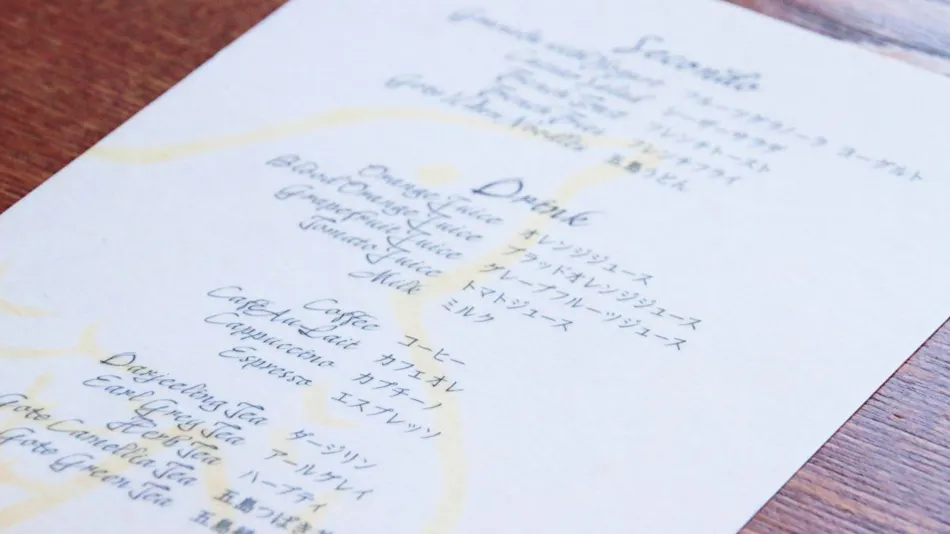 Secondo
ヨーグルト
シーザーサラダ
French Toast フレンチトースト
フレンチフライ
五島うどん
Drink
Orange Juice オレンジジュース
Blood Orange Juice ブラッドオレンジジュース
Grapefruit Juice グレープフルーツジュース
Tomato Juice トマトジュース
Milk ミルク
Coffee コーヒー
Café Au Lait カフェオレ
Cappuccino カプチーノ
Espresso エスプレッソ
Darjeeling Tea ダージリン
Earl Grey Tea アールグレイ
Herb Tea ハーブティ
Gote Camellia Tea 五島つばき
Gote Green Tea 五島